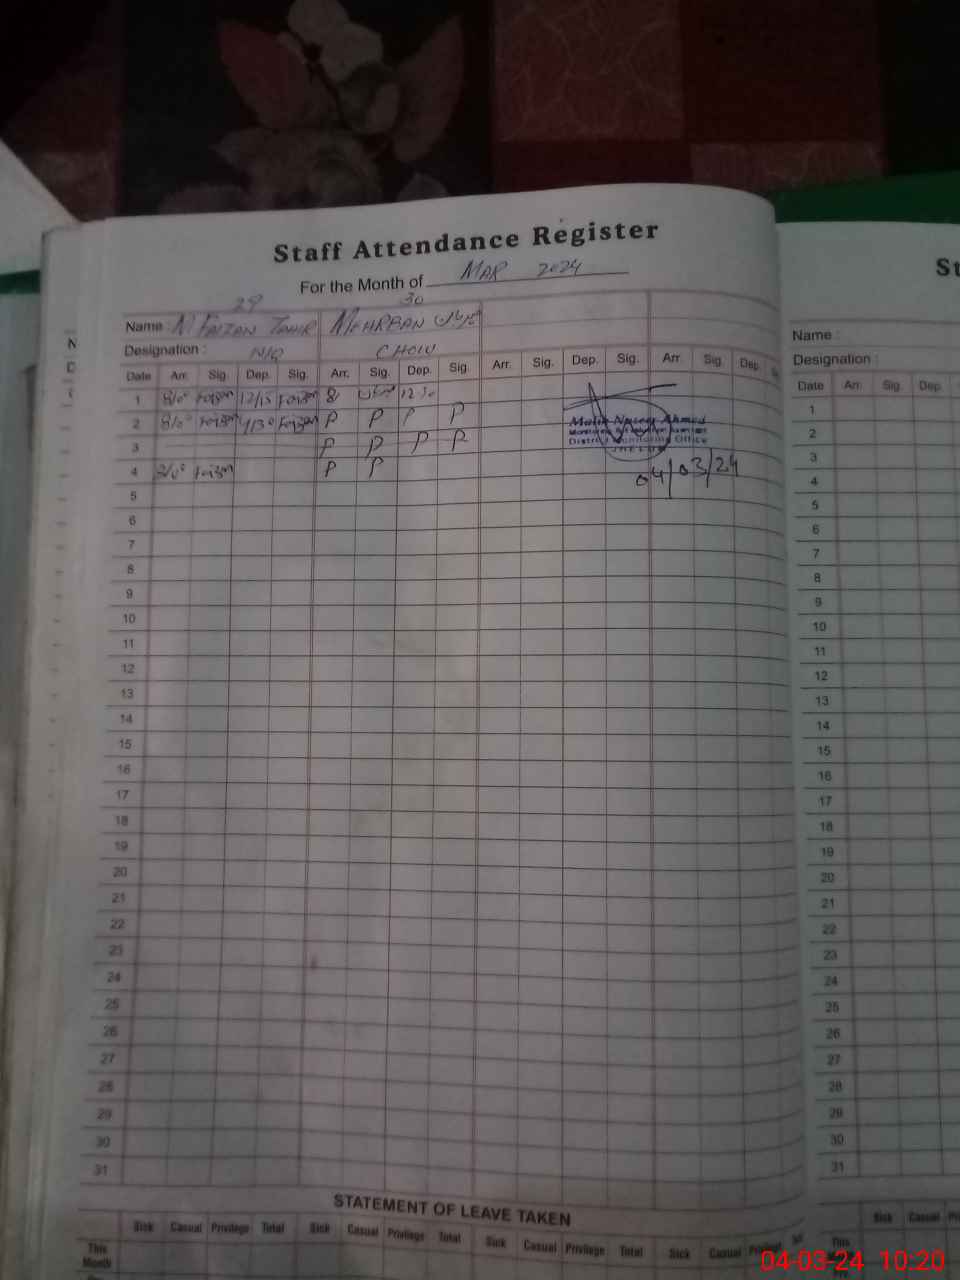 Staff Attendance Register
St
For the Month of MAR 2024
29 30
Name : M FAIZAN TAHIR MEHRBAN
Name :
Designation : N/Q CHOW
Designation :
Date Arr. Sig. Dep. Sig. Arr. Sig. Dep. Sig. Arr. Sig. Dep. Sig. Arr. Sig. Dep.
Date Arr. Sig. Dep.
1 8/00 Faizan 12/15 Faizan 8 12 30
2 8/00 Faizan 1/30 Faizan P P P P
3 P P P P
4 8/00 Faizan P P
Malik Naseer Ahmed
Monitoring & Evaluation Assistant
District Monitoring Office
JHELUM
04/03/24
5
6
7
8
9
10
11
12
13
14
15
16
17
18
19
20
21
22
23
24
25
26
27
28
29
30
31
1
2
3
4
5
6
7
8
9
10
11
12
13
14
15
16
17
18
19
20
21
22
23
24
25
26
27
28
29
30
31
STATEMENT OF LEAVE TAKEN
Sick Casual Privilege Total Sick Casual Privilege Total Sick Casual Privilege Total Sick Casual Privilege
Sick Casual
This Month
This
04-03-24 10:20